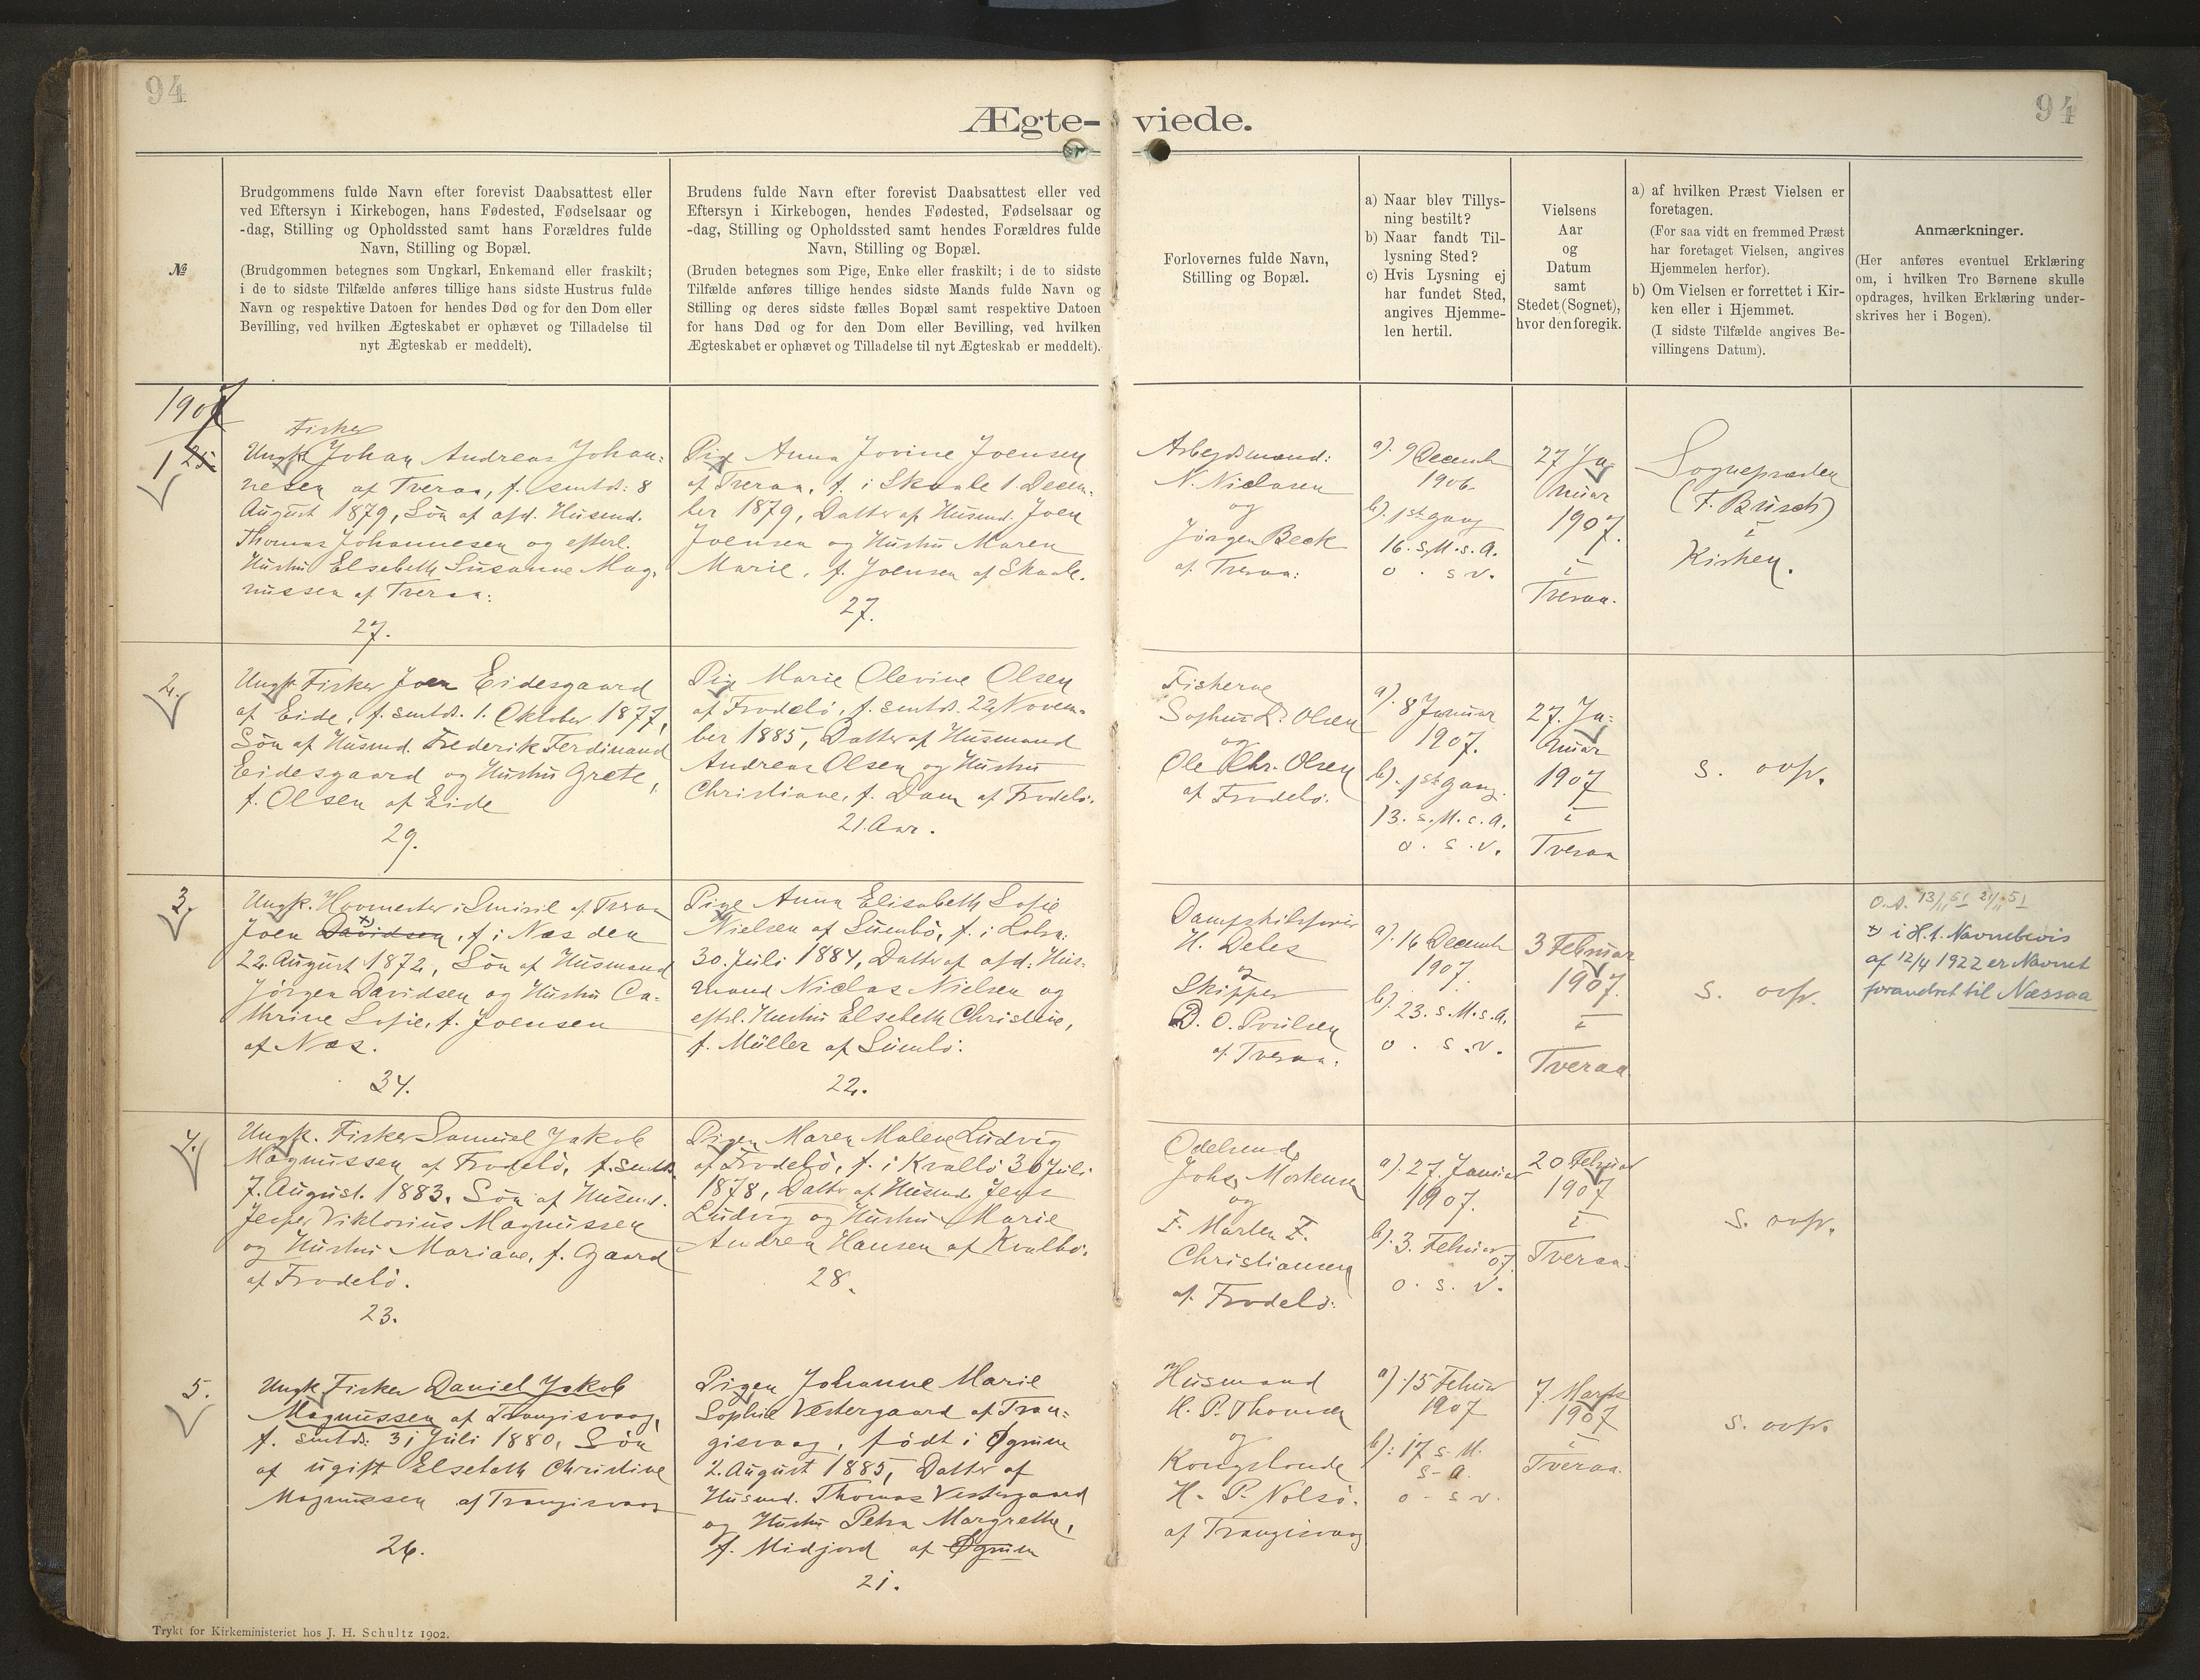 94
94
Ægte-viede.
№
Brudgommens fulde Navn efter forevist Daabsattest eller
ved Eftersyn i Kirkebogen, hans Fødested, Fødselsaar og
-dag, Stilling og Opholdssted samt hans Forældres fulde
Navn, Stilling og Bopæl.
(Brudgommen betegnes som Ungkarl, Enkemand eller fraskilt;
i de to sidste Tilfælde anføres tillige hans sidste Hustrus fulde
Navn og respektive Datoen for hendes Død og for den Dom eller
Bevilling, ved hvilken Ægteskabet er ophævet og Tilladelse til
nyt Ægteskab er meddelt).
Brudens fulde Navn efter forevist Daabsattest eller ved
Eftersyn i Kirkebogen, hendes Fødested, Fødselsaar og
-dag, Stilling og Opholdssted samt hendes Forældres fulde
Navn, Stilling og Bopæl.
(Bruden betegnes som Pige, Enke eller fraskilt; i de to sidste
Tilfælde anføres tillige hendes sidste Mands fulde Navn og
Stilling og deres sidste fælles Bopæl samt respektive Datoen
for hans Død og for den Dom eller Bevilling, ved hvilken
Ægteskabet er ophævet og Tilladelse til nyt Ægteskab er meddelt).
Forlovernes fulde Navn,
Stilling og Bopæl.
a) Naar blev Tillys-
ning bestilt?
b) Naar fandt Til-
lysning Sted?
c) Hvis Lysning ej
har fundet Sted,
angives Hjemme-
len hertil.
Vielsens
Aar
og
Datum
samt
Stedet (Sognet),
hvor den foregik.
a) af hvilken Præst Vielsen er
foretagen.
(For saa vidt en fremmed Præst
har foretaget Vielsen, angives
Hjemmelen herfor).
b) Om Vielsen er forrettet i Kir-
ken eller i Hjemmet.
(I sidste Tilfælde angives Be-
villingens Datum).
Anmærkninger.
(Her anføres eventuel Erklæring
om, i hvilken Tro Børnene skulle
opdrages, hvilken Erklæring under-
skrives her i Bogen).
1907
1 25
Fisker
Ungk. Johan Andreas Johan-
nesen af Tveraa, f. smtds. 8
August 1879, Søn af afd. Husmd.
Thomas Johannesen og efterl.
Hustru Elsebeth Susanne Mag-
nussen af Tveraa.
27.
Pige Anna Jovine Joensen
af Tveraa, f. i Skaale 1. Decem-
ber 1879, Datter af Husmd. Joen
Joensen og Hustru Maren
Marie, f. Joensen af Skaale.
27.
Arbejdsmænd:
N. Niclasen
og
Jørgen Beck
af Tveraa.
a). 9 Decemb
1906
b). 1ste gang
16. s. M. s. A.
o. s. v.
27 Ja
nuar
1907.
i
Tveraa.
Sognepræsten
(F. Busch)
i
Kirken.
2.
Ungk. Fisker Joen Eidesgaard
af Eide, f. smtds. 1. Oktober 1877,
Søn af Husmd. Frederik Ferdinand
Eidesgaard og Hustru Grete,
f. Olsen af Eide
29.
Pige Marie Olevine Olsen
af Frodebø, f. smtds. 22 Novem-
ber 1885, Datter af Husmand
Andreas Olsen og Hustru
Christiane, f. Dam af Frodebø.
21. Aar.
Fiskerne
Sophus D. Olsen
og
Ole Chr. Olsen
af Frodebø.
a). 8 Januar
1907.
b). 1ste gang
13. s. M. s. A.
o. s. v.
27. Ja-
nuar
1907
i
Tveraa
s. ovfr.
3.
Ungk. Hovmester i Smiril af Tveraa
Joen Davidsen, f. i Næs den
22. August 1872, Søn af Husmand
Jørgen Davidsen og Hustru Ca-
thrine Sofie, f. Joensen
af Næs.
34.
Pige Anna Elisabeth Sofie
Nielsen af Sumbø, f. i Lobra
30. Juli 1884, Datter af afd. Hus-
mand Niclas Nielsen og
efterl. Hustru Elsebeth Christine,
f. Müller af Sumbø.
22.
H. Debes
og
Skipper
D. O. Poulsen
af Tveraa.
a). 16 Decemb
1907.
b). 23. s. M. s. A.
o. s. v.
3 Februar
1907.
i
Tveraa.
s. ovfr.
O.A. 13/11 51 21/11 51
x) i H. t. Navnebevis
af 12/4 1922 er Navnet
forandret til Næssaa
4.
Ungk. Fisker Samuel Jakob
Magnussen af Frodebø, f. smtds.
7. August. 1883. Søn af Husmd.
Jesper Viktorius Magnussen
og Hustru Mariane, f. Gaard
af Frodebø.
23.
Pigen Maren Malene Ludvig
af Frodebø, f. i Kvalbø 30 Juli
1878, Datter af Husmd. Jens
Ludvig og Hustru Marie
Andrea Hansen af Kvalbø.
28.
Odelsmd.
Johs. Mortensen
og
F. Morten F.
Christiansen
af Frodebø.
a). 27. Januar
1907.
b). 3. Februar
07.
o. s. v.
20 Februar
1907
i
Tveraa.
s. ovfr.
5.
Ungk. Fisker Daniel Jakob
Magnussen af Trangisvaag,
f. smtds. 31 Juli 1880, Søn
af ugift Elsebeth Christine
Magnussen af Trangisvaag
26.
Pigen Johanne Marie
Sophie Vestergaard af Tran-
gisvaag, født i Øgrum
2. August 1885, Datter af
Husmd. Thomas Vestergaard
og Hustru Petra Margrethe,
f. Midjord af Øgrum
21.
Husmand
H. P. Thomsen
og
Kongsbonde
H. P. Nolsø.
af Trangisvaag
a). 15 Februar
1907
b): 17 s. M.
s. A.
o. s. v.
7. Marts
1907
i
Tveraa.
s. ovfr.
Trykt for Kirkeministeriet hos J. H. Schultz 1902.